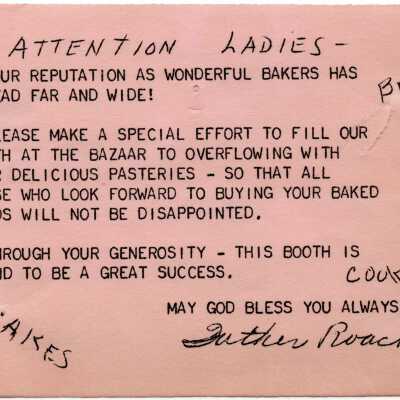 ATTENTION LADIES -
UR REPUTATION AS WONDERFUL BAKERS HAS
AD FAR AND WIDE!
B
EASE MAKE A SPECIAL EFFORT TO FILL OUR
TH AT THE BAZAAR TO OVERFLOWING WITH
R DELICIOUS PASTERIES - SO THAT ALL
SE WHO LOOK FORWARD TO BUYING YOUR BAKED
DS WILL NOT BE DISAPPOINTED.
HROUGH YOUR GENEROSITY - THIS BOOTH IS
ND TO BE A GREAT SUCCESS.
COOK
MAY GOD BLESS YOU ALWAYS
AKES
Father Roach